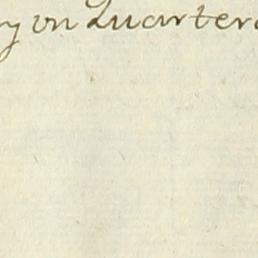 y on Quarter